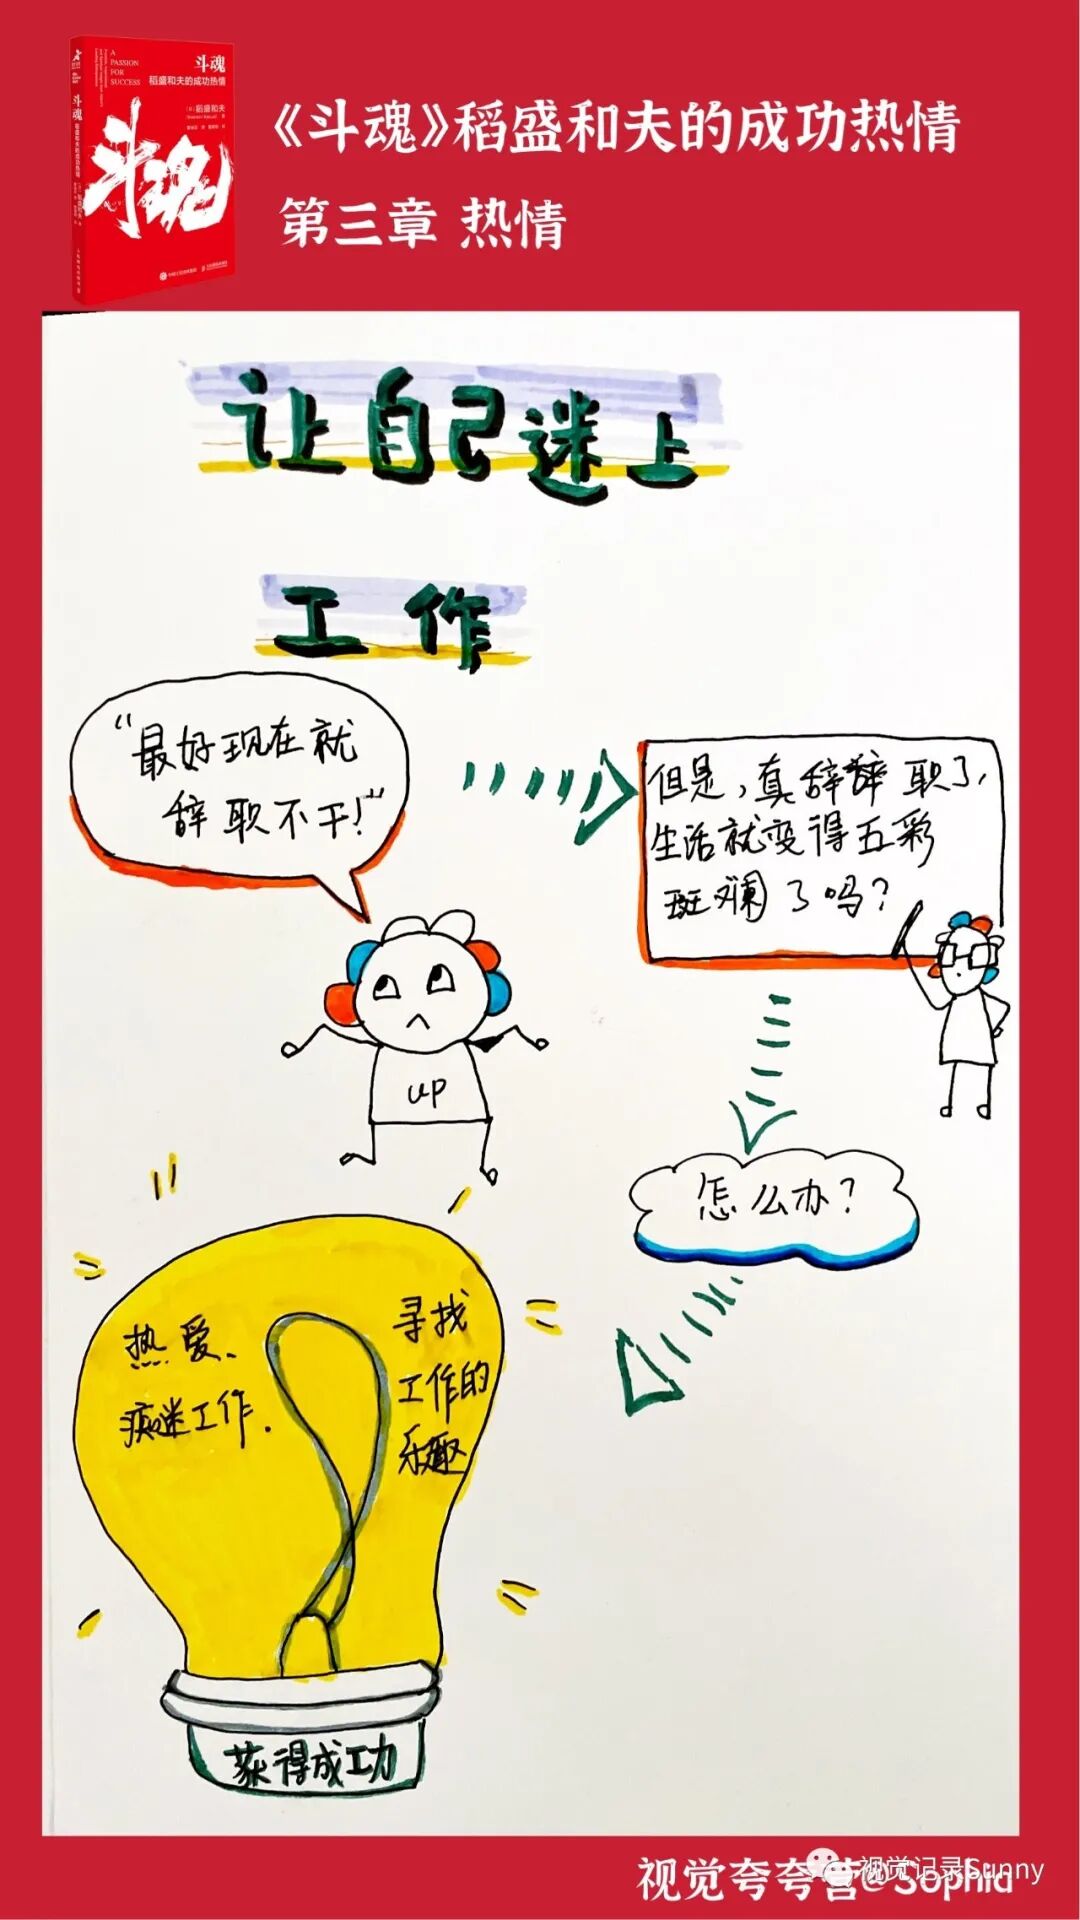 A
PASSION
FOR
SUCCESS
斗魂
稻盛和夫的成功热情
斗魂
斗魂
稻盛和夫的成功热情
《斗魂》稻盛和夫的成功热情
第三章 热情
让自己迷上
工作
“最好现在就
辞职不干!”
但是,真辞辞职了,
生活就变得五彩
斑斓了吗?
UP
怎么办?
热爱、
痴迷工作.
寻找
工作的
乐趣
获得成功
视觉夸夸营@Sophia
视觉记录Sunny